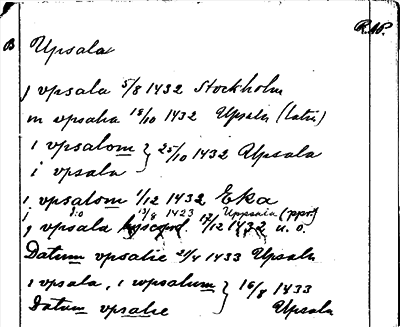 R.N.
B Upsala
j vpsala 5/8 1432 Stockholm
in vpsalia 18/10 1432 Upsala (latin)
i vpsalom } 25/10 1432 Upsala
i vpsala
i, vpsalom 1/12 1432 Eka
i do 13/8 1423 Uppsania (ppr)
j vpsala 17/12 1432 u. o.
Datum vpsalie 21/4 1433 Upsala
i vpsala, i wpsalum } 16/8 1433
Datum vpsalie Upsala